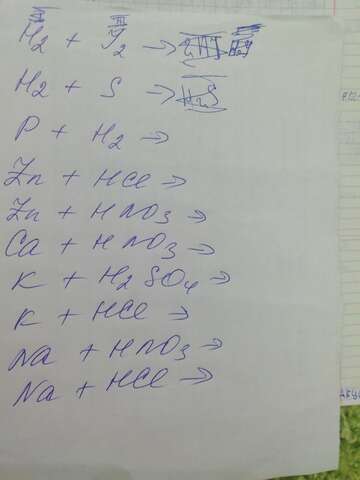 H2 + J2 →
H2 + S → H2S
P + H2 →
Zn + HCl →
Zn + HNO3 →
Ca + HNO3 →
K + H2SO4 →
K + HCl →
Na + HNO3 →
Na + HCl →